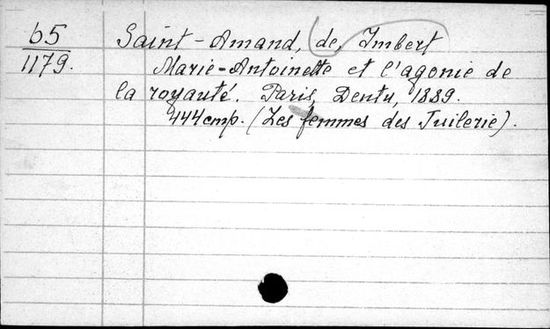 65
1179.
Saint-Amand, de, Imbert
Marie-Antoinette et l'agonie de
la royauté. Paris, Dentu, 1889.
444 cmp. (Les femmes des Tuilerie).